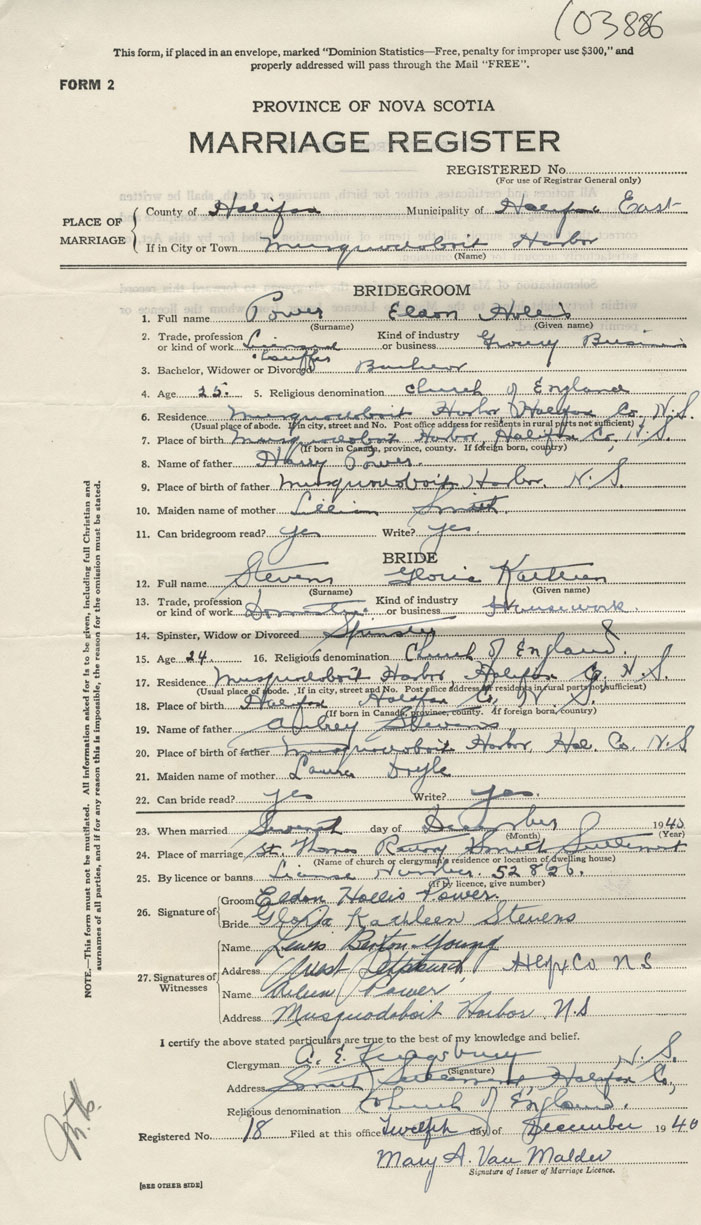 103886
This form, if placed in an envelope, marked "Dominion Statistics—Free, penalty for improper use $300," and
properly addressed will pass through the Mail "FREE".
FORM 2
PROVINCE OF NOVA SCOTIA
MARRIAGE REGISTER
REGISTERED No.
(For use of Registrar General only)
PLACE OF MARRIAGE
County of Halifax Municipality of Halifax East
If in City or Town Musquodoboit Harbor
(Name)
BRIDEGROOM
1. Full name Power Eldon Hollis
(Surname) (Given name)
2. Trade, profession or kind of work Kind of industry or business Grocery Business
3. Bachelor, Widower or Divorced Bachelor
4. Age 25. 5. Religious denomination Church of England
6. Residence Musquodoboit Harbor Halifax Co, N.S.
(Usual place of abode. If in city, street and No. Post office address for residents in rural parts not sufficient)
7. Place of birth Musquodoboit Harbor, Halifax Co, N.S.
(If born in Canada, province, county. If foreign born, country)
8. Name of father Harry Power.
9. Place of birth of father Musquodoboit Harbor. N.S.
10. Maiden name of mother Lillian Smith.
11. Can bridegroom read? yes Write? yes.
BRIDE
12. Full name Stevens Gloria Kathleen
(Surname) (Given name)
13. Trade, profession or kind of work Domestic. Kind of industry or business Housework.
14. Spinster, Widow or Divorced Spinster
15. Age 24 16. Religious denomination Church of England.
17. Residence Musquodoboit Harbor, Halifax Co, N.S.
(Usual place of abode. If in city, street and No. Post office address for residents in rural parts not sufficient)
18. Place of birth Halifax Halifax Co, N.S.
(If born in Canada, province, county. If foreign born, country)
19. Name of father Aubrey Stevens
20. Place of birth of father Musquodoboit Harbor Hal. Co. N.S
21. Maiden name of mother Laura Doyle
22. Can bride read? yes Write? yes.
23. When married Seventh day of December 1940
(Month) (Year)
24. Place of marriage St. Thomas Rectory Smith Settlement
(Name of church or clergyman's residence or location of dwelling house)
25. By licence or banns License Number. 52826.
(If by licence, give number)
26. Signature of
Groom Eldon Hollis Power.
Bride Gloria Kathleen Stevens
27. Signatures of Witnesses
Name Lewis Barton Young
Address West Hlfx Co N S
Name Power
Address Musquodoboit Harbor N.S
I certify the above stated particulars are true to the best of my knowledge and belief.
Clergyman A. E. Kingsbury N.S.
(Signature)
Address Smith Settlement, Halifax Co,
Religious denomination Church of England.
Registered No. 18 Filed at this office Twelfth day of December 1940
Mary A. Van Malder
Signature of Issuer of Marriage Licence.
[SEE OTHER SIDE]
NOTE.—This form must not be mutilated. All information asked for is to be given, including full Christian and
surnames of all parties, and if for any reason this is impossible, the reason for the omission must be stated.